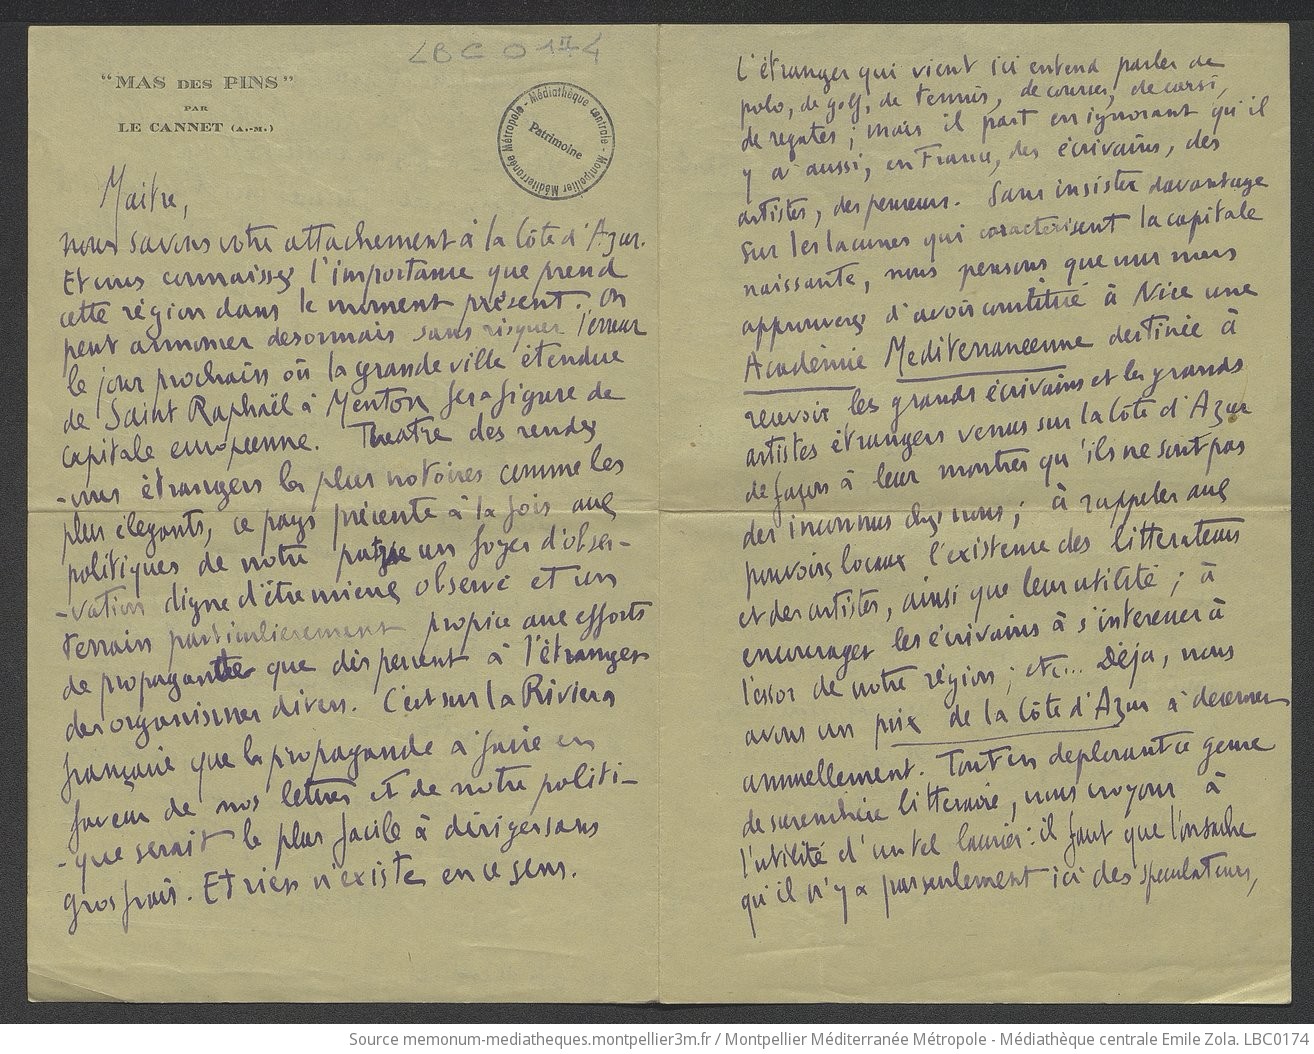 LBC 0174
"MAS DES PINS"
PAR
LE CANNET (A.-M.)
Montpellier Méditerranée Métropole - Médiathèque centrale -
Patrimoine
Maitre,
nous savons votre attachement à la Côte d'Azur.
Et vous connaissez l'importance que prend
cette région dans le moment présent. On
peut annoncer desormais sans risquer l'erreur
le jour prochain où la grande ville étendue
de Saint Raphaël à Menton fera figure de
capitale européenne. Theatre des rendez
-vous étrangers les plus notoires comme les
plus élegants, ce pays présente à la fois aux
politiques de notre patrie un foyer d'obser-
-vation digne d'être mieux observé et un
terrain particulierement propice aux efforts
de propagande que dispensent à l'étranger
des organismes divers. C'est sur la Riviera
française que la propagande à faire en
faveur de nos lettres et de notre politi-
-que serait le plus facile à diriger sans
gros frais. Et rien n'existe en ce sens.
L'étranger qui vient ici entend parler de
polo, de golf, de tennis, de courses, de corsi,
de regates ; mais il part en ignorant qu'il
y a aussi, en France, des écrivains, des
artistes, des penseurs. Sans insister davantage
sur les lacunes qui caracterisent la capitale
naissante, nous pensons que vous nous
approuverez d'avoir constitué à Nice une
Académie Mediterranéenne destinée à
recevoir les grands écrivains et les grands
artistes étrangers venus sur la Côte d'Azur
de façon à leur montrer qu'ils ne sont pas
des inconnus chez nous ; à rappeler aux
pouvoirs locaux l'existence des litterateurs
et des artistes, ainsi que leur utilité ; à
encourager les écrivains à s'interesser à
l'essor de notre région ; etc... Déja, nous
avons un prix de la Côte d'Azur à decerner
annuellement. Tout en deplorant ce genre
de surenchère litteraire, nous croyons à
l'utilité d'un tel laurier : il faut que l'on sache
qu'il n'y a pas seulement ici des speculateurs,
Source memonum-mediatheques.montpellier3m.fr / Montpellier Méditerranée Métropole - Médiathèque centrale Emile Zola. LBC0174